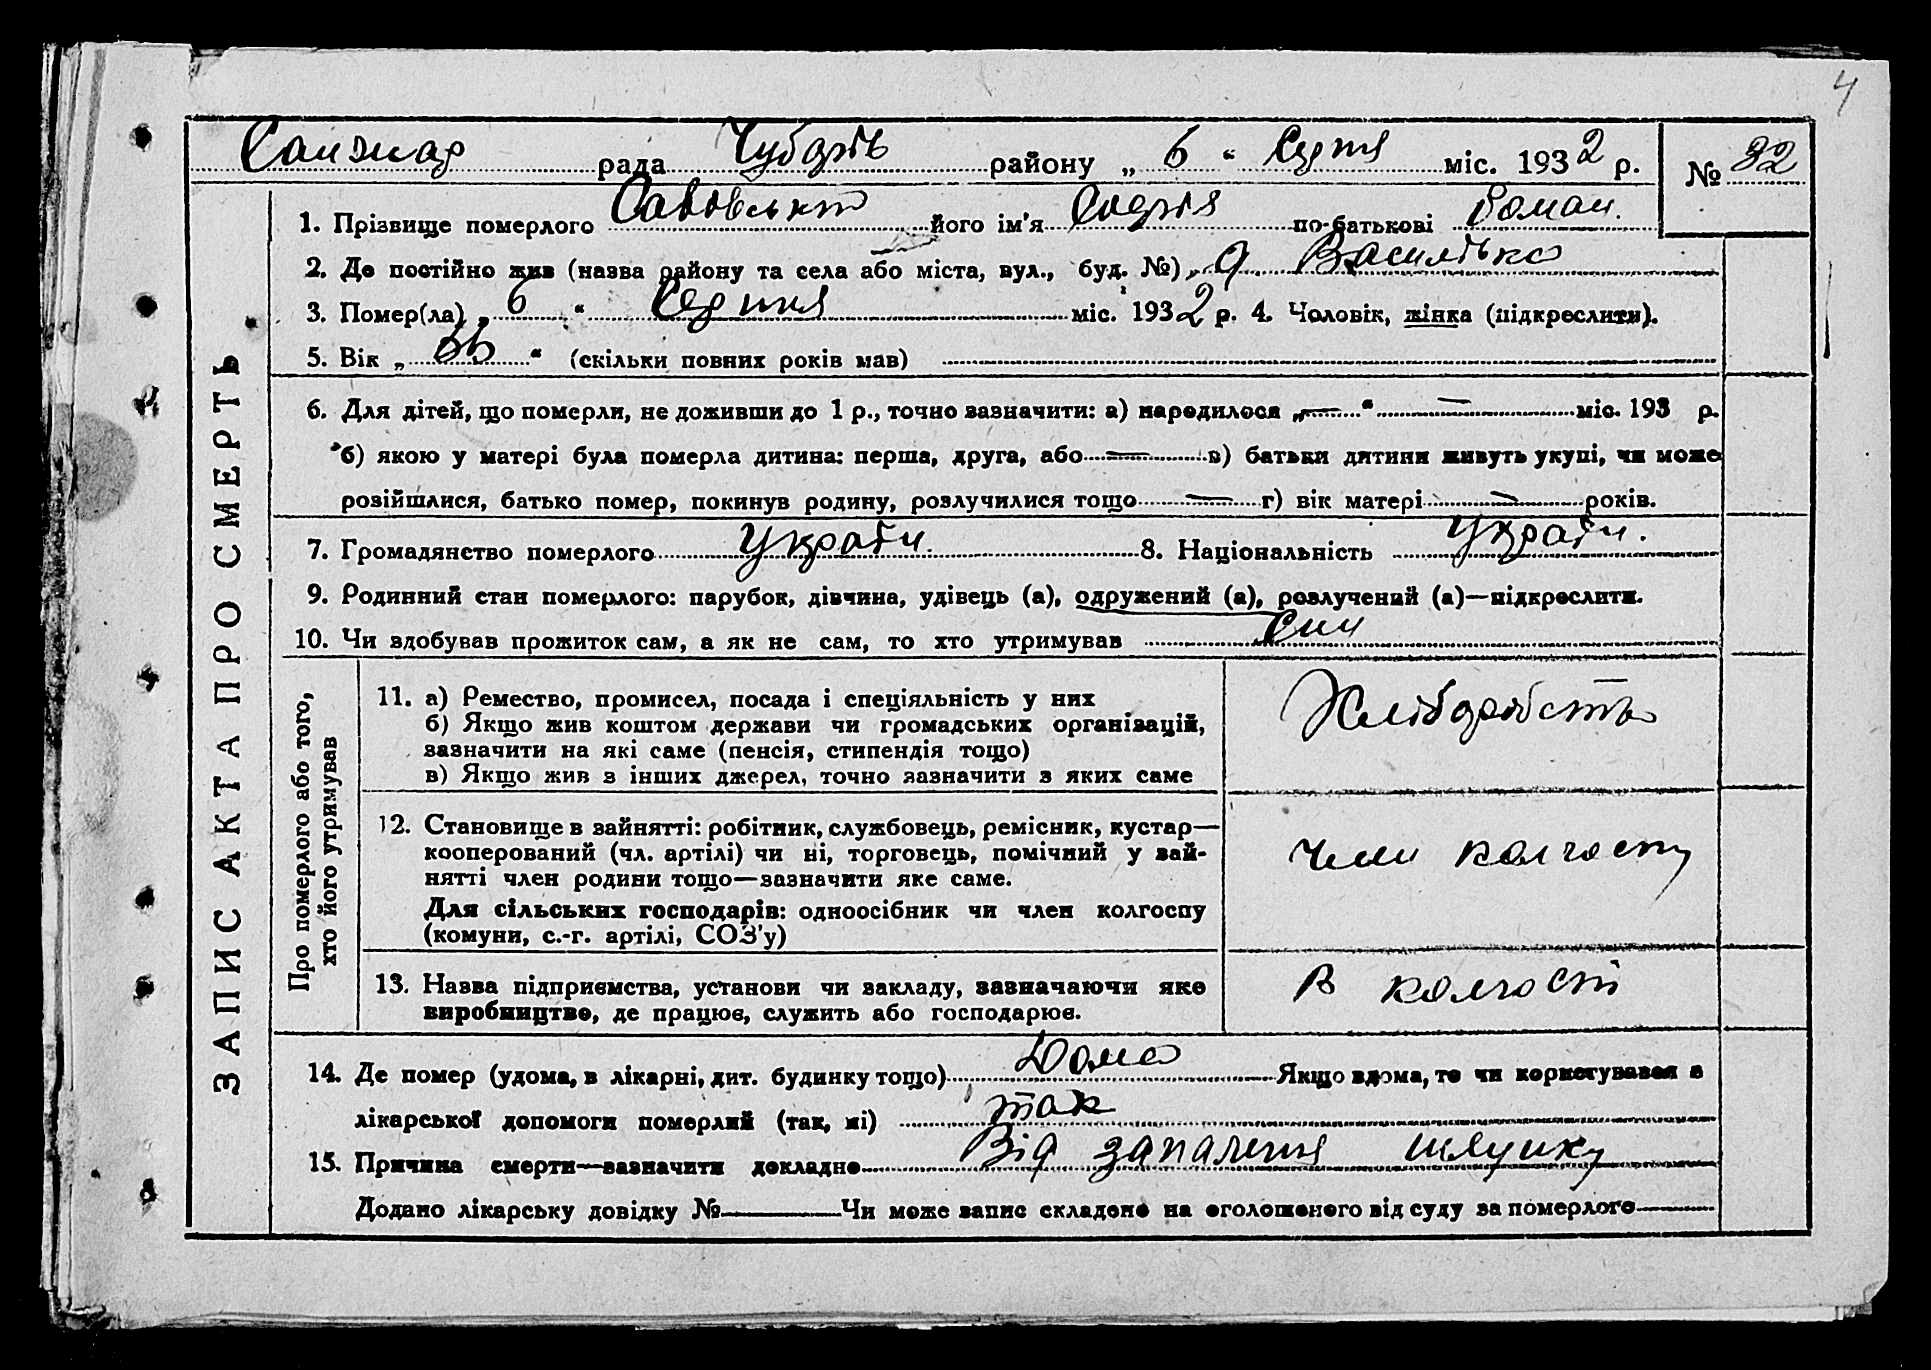 4
Санжар рада Чубарів району „ 6 “ Серпня міс. 1932 р. № 32
1. Прізвище померлого його ім'я Софія по-батькові Роман.
2. Де постійно жив (назва району та села або міста, вул., буд. №) Василівка
3. Помер(ла) „ 6 “ Серпня міс. 1932 р. 4. Чоловік, жінка (підкреслити).
5. Вік „ “ (скільки повних років мав)
6. Для дітей, що померли, не доживши до 1 р., точно зазначити: а) народилося „—“ — міс. 193 р.
б) якою у матері була померла дитина: перша, друга, або — в) батьки дитини живуть укупі, чи може
розійшлися, батько помер, покинув родину, розлучилися тощо — г) вік матері — років.
7. Громадянство померлого Україн. 8. Національність Україн.
9. Родинний стан померлого: парубок, дівчина, удівець (а), одружений (а), розлучений (а)—підкреслити.
10. Чи здобував прожиток сам, а як не сам, то хто утримував
ЗАПИС АКТА ПРО СМЕРТЬ
Про померлого або того,
хто його утримував
11. а) Ремество, промисел, посада і спеціяльність у них
б) Якщо жив коштом держави чи громадських організацій,
зазначити на які саме (пенсія, стипендія тощо)
в) Якщо жив з інших джерел, точно зазначити з яких саме
Хліборобств
12. Становище в зайнятті: робітник, службовець, ремісник, кустар—
кооперований (чл. артілі) чи ні, торговець, помічний у зай-
нятті член родини тощо—зазначити яке саме.
Для сільських господарів: одноосібник чи член колгоспу
(комуни, с.-г. артілі, СОЗ'у)
член колгоспу
13. Назва підприємства, установи чи закладу, зазначаючи яке
виробництво, де працює, служить або господарює.
в колгоспі
14. Де помер (удома, в лікарні, дит. будинку тощо) Дома Якщо вдома, то чи користувався з
лікарської допомоги померлий (так, ні) так
15. Причина смерти—зазначити докладно Від запалення шлунку
Додано лікарську довідку №— Чи може запис складено на оголошеного від суду за померлого—